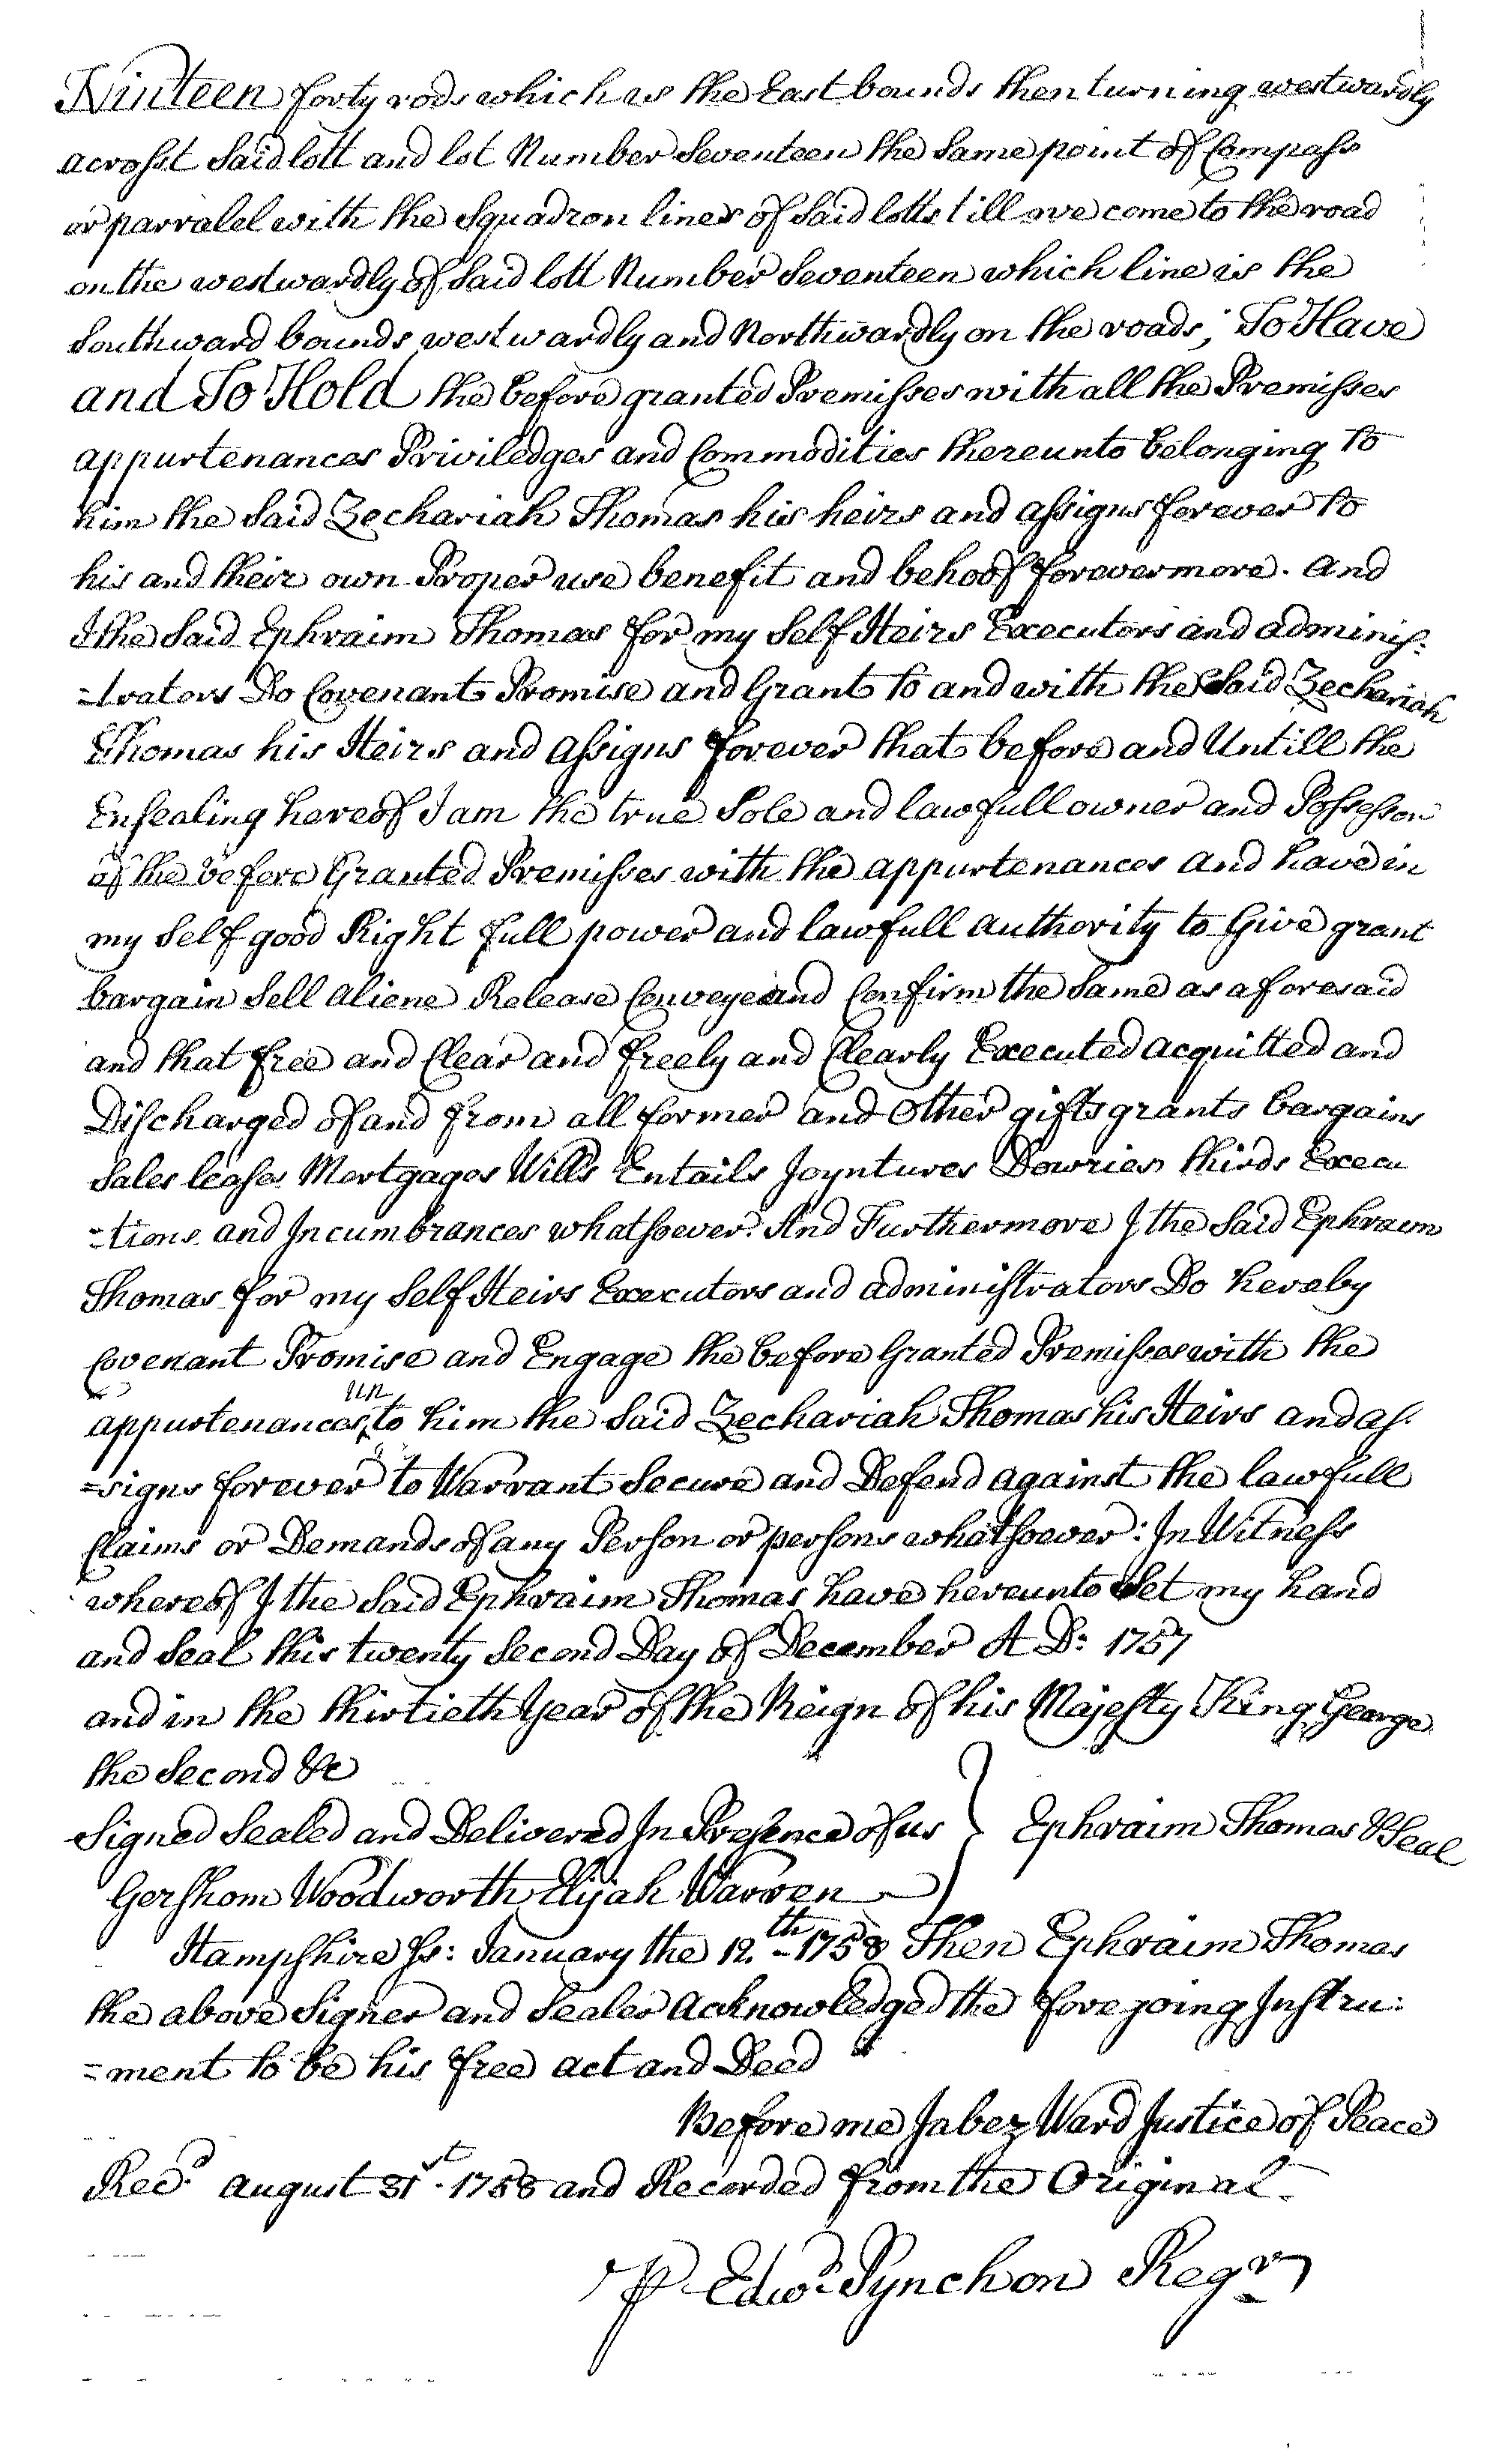 Ninteen forty rods which is the East bounds then turning westwardly
acrosst Said lott and lot Number Seventeen the Same point of Compass
or parralel with the Squadron lines of Said lotts till we come to the road
on the westwardly of Said lott Number Seventeen which line is the
Southward bounds westwardly and Northwardly on the roads; To Have
and To Hold the before granted Premisses with all the Premisses
appurtenances Priviledges and Commodities thereunto belonging to
him the Said Zechariah Thomas his heirs and assigns forever to
his and their own Proper use benefit and behoof forevermore. And
I the Said Ephraim Thomas for my Self Heirs Executors and adminis:
=trators Do Covenant Promise and Grant to and with the Said Zechariah
Thomas his Heirs and assigns forever that before and Untill the
Ensealing hereof I am the true Sole and lawfull owner and Possessor
of the before Granted Premisses with the appurtenances and have in
my Self good Right full power and lawfull authority to Give grant
bargain Sell aliene Release Conveye and Confirm the Same as aforesaid
and that free and Clear and freely and Clearly Executed acquitted and
Discharged of and from all former and Other gifts grants bargains
Sales leases Mortgages Wills Entails Joyntures Dowries thirds Execu
=tions and Incumbrances whatsoever. And Furthermore I the Said Ephraim
Thomas for my Self Heirs Executors and administrators Do hereby
Covenant Promise and Engage the before Granted Premisses with the
appurtenances unto him the Said Zechariah Thomas his Heirs and as:
=signs forever to Warrant Secure and Defend against the lawfull
Claims or Demands of any Person or persons whatsoever: In Witness
whereof I the Said Ephraim Thomas have hereunto Set my hand
and Seal this twenty Second Day of December A D: 1757
and in the thirtieth Year of the Reign of his Majesty King George
the Second &c
Signed Sealed and Delivered In Presence of us } Ephraim Thomas & Seal
Gershom Woodworth Elijah Warren
Hampshire Ss: January the 12.th 1758 Then Ephraim Thomas
the above Signer and Sealer Acknowledged the foregoing Instru:
=ment to be his free act and Deed
Before me Jabez Ward Justice of Peace
Recd. august 31st. 1758 and Recorded from the Original
P Edwd. Pynchon Regr